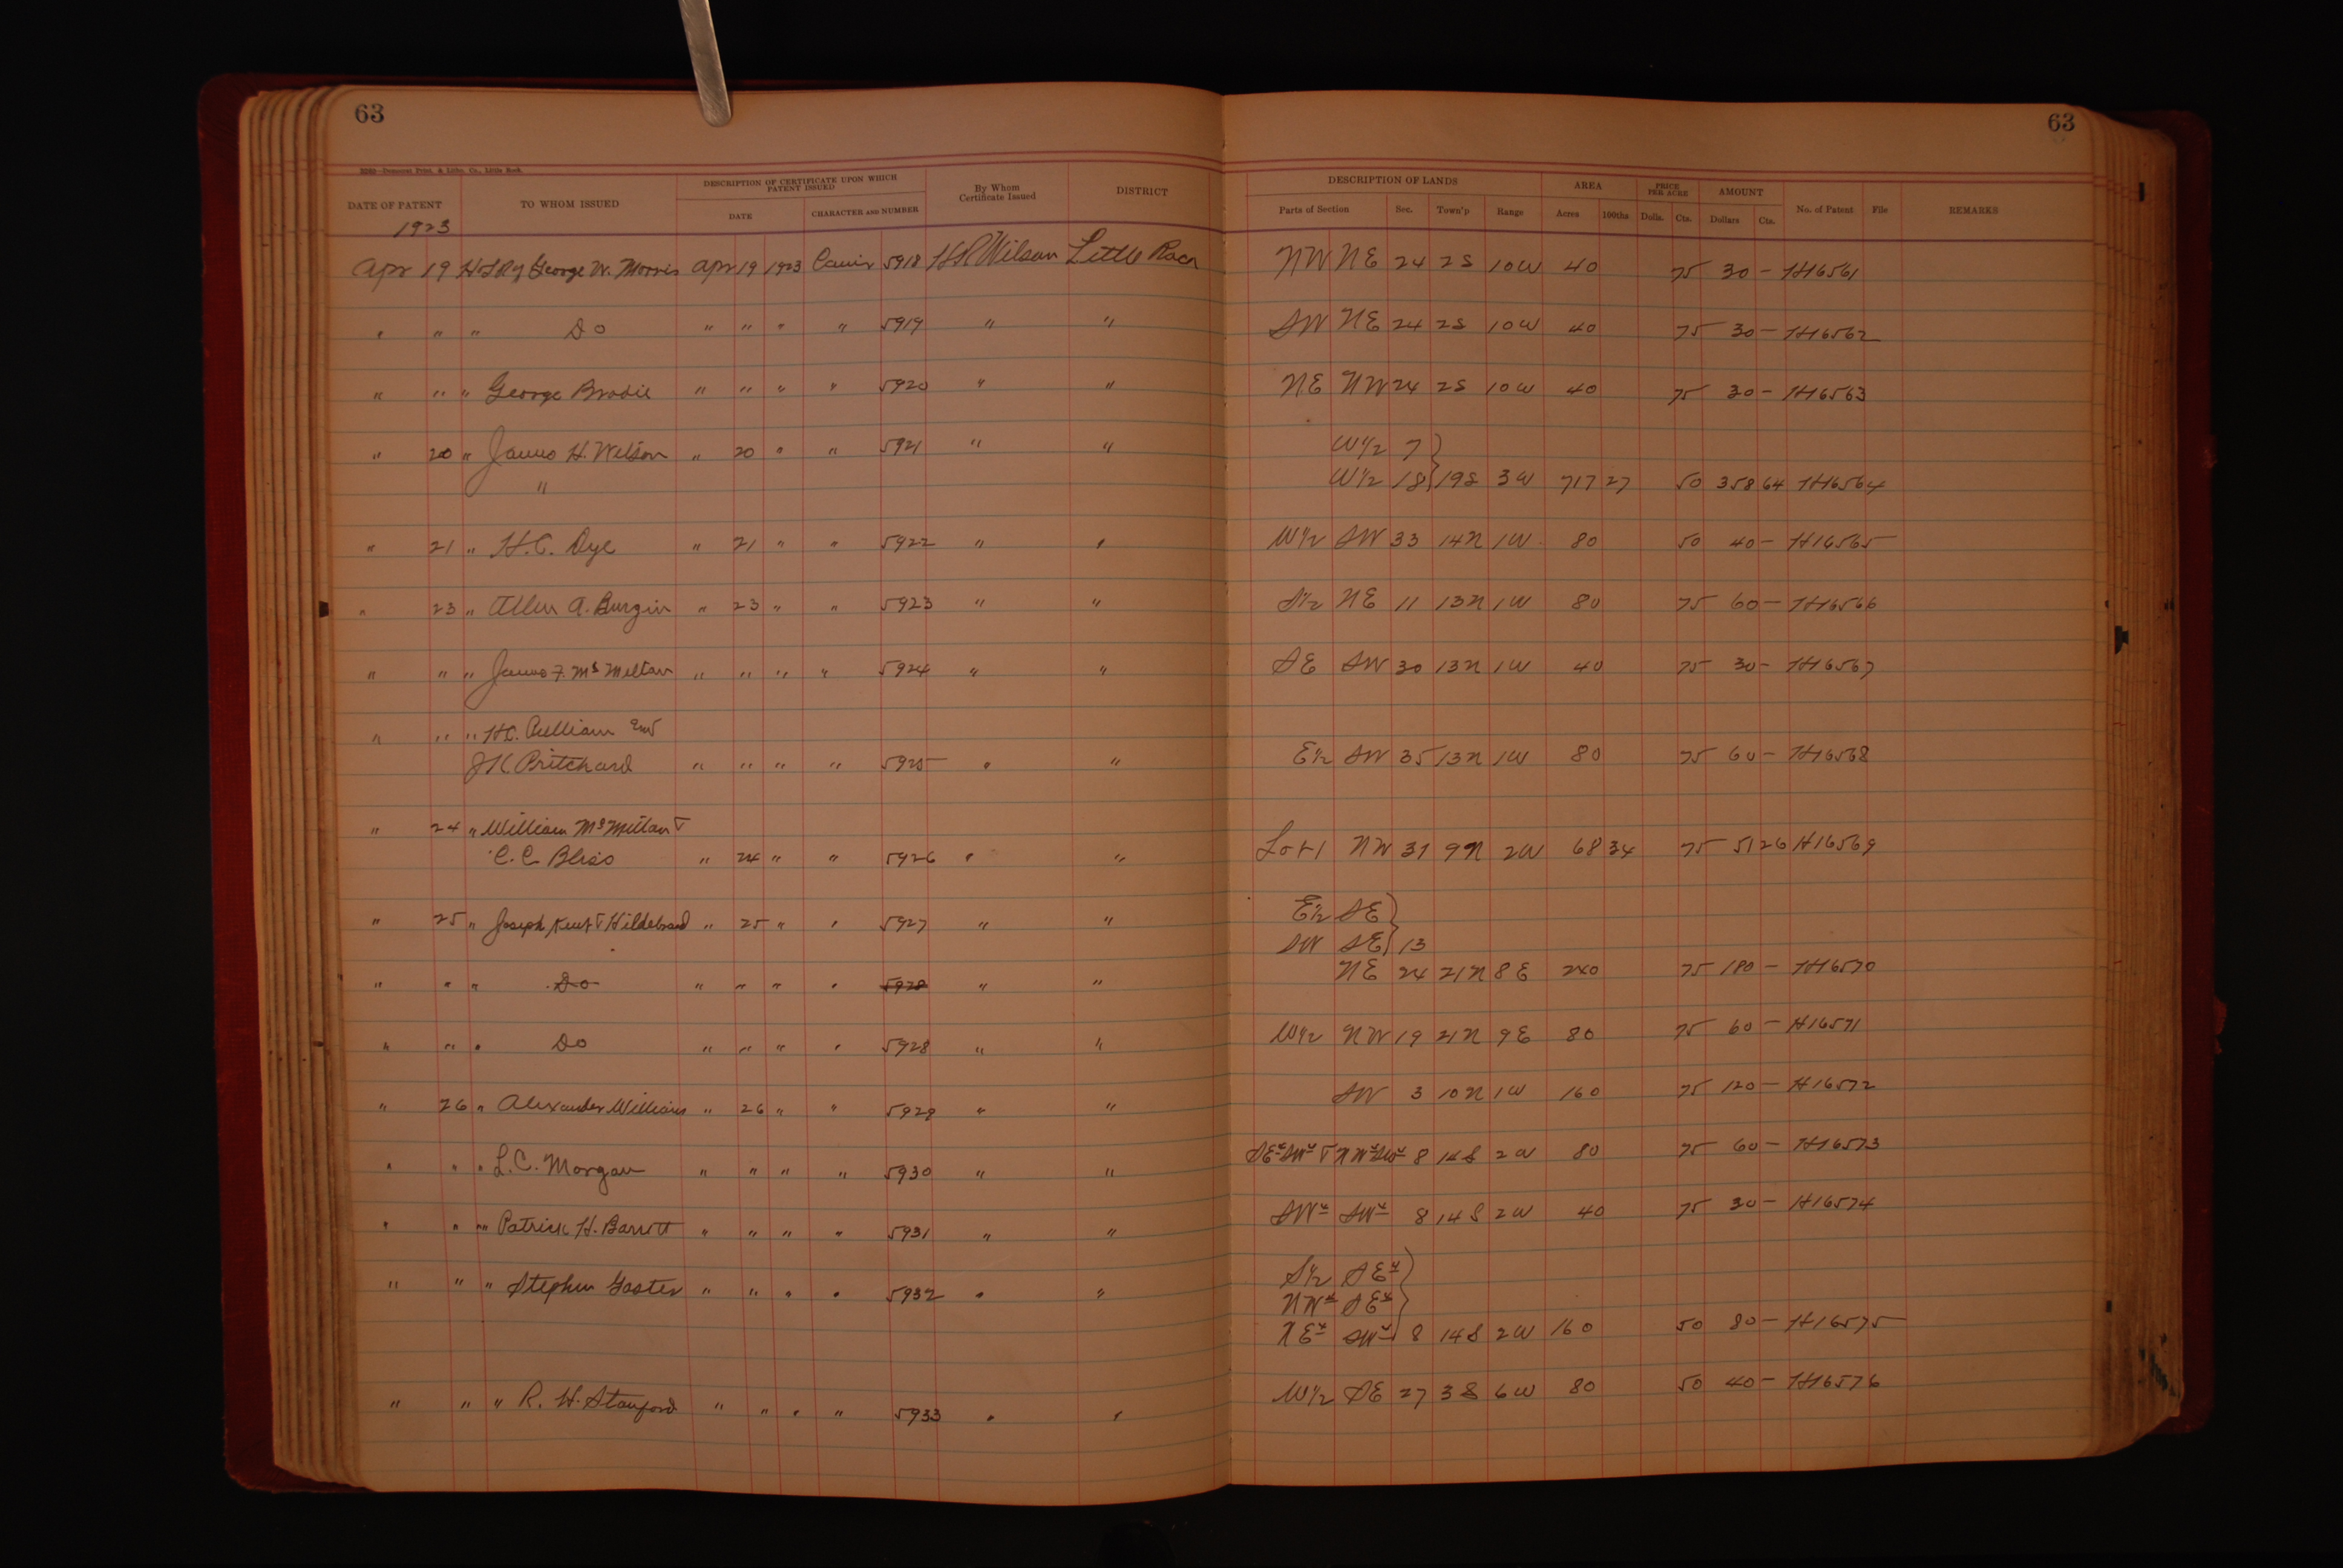 63
63
3260—Democrat Print. & Litho. Co., Little Rock
DATE OF PATENT TO WHOM ISSUED DESCRIPTION OF CERTIFICATE UPON WHICH PATENT ISSUED DATE CHARACTER AND NUMBER By Whom Certificate Issued DISTRICT DESCRIPTION OF LANDS Parts of Section Sec. Town'p Range AREA Acres 100ths PRICE PER ACRE Dolls. Cts. AMOUNT Dollars Cts. No. of Patent File REMARKS
1923
Apr 19 George W. Morris Apr 19 1923 5918 Wilson Little Rock NW NE 24 2S 10W 40 75 30 — H16561
" " " Do " " " " 5919 " " SW NE 24 2S 10W 40 75 30 — H16562
" " " George Brodie " " " " 5920 " " NE NW 24 2S 10W 40 75 30 — H16563
" 20 " James H. Wilson " 20 " " 5921 " " W1/2 7 }
" W1/2 18 } 19S 3W 717 27 50 358 64 H16564
" 21 " H.C. Dye " 21 " " 5922 " " W1/2 SW 33 14N 1W 80 50 40 — H16565
" 23 " Allen A. Burgin " 23 " " 5923 " " S1/2 NE 11 13N 1W 80 75 60 — H16566
" " " James F. McMeltan " " " " 5924 " " SE SW 30 13N 1W 40 75 30 — H16567
" " " H.C. and
J K Pritchard " " " " 5925 " " E1/2 SW 35 13N 1W 80 75 60 — H16568
" 24 " William McMillan &
C. C. Bliss " 24 " " 5926 " " Lot 1 NW 31 9N 2W 68 34 75 51 26 H16569
" 25 " Joseph Kent & Hildebrand " 25 " " 5927 " " E1/2 SE }
SW SE } 13
" " " Do " " " " 5928 " " NE 24 21N 8E 240 75 180 — H16570
" " " Do " " " " 5928 " " W1/2 NW 19 21N 9E 80 75 60 — H16571
" 26 " Alexander Williams " 26 " " 5929 " " SW 3 10N 1W 160 75 120 — H16572
" " " L.C. Morgan " " " " 5930 " " SE4 SW4 & NW4 SW4 8 14S 2W 80 75 60 — H16573
" " " Patrick H. Barrett " " " " 5931 " " SW4 SW4 8 14S 2W 40 75 30 — H16574
" " " Stephen Gaster " " " " 5932 " " S1/2 SE4 }
NW4 SE4
NE4 SW4 8 14S 2W 160 50 80 — H16575
" " " R. H. Stanford " " " " 5933 " " W1/2 SE 27 3S 6W 80 50 40 — H16576